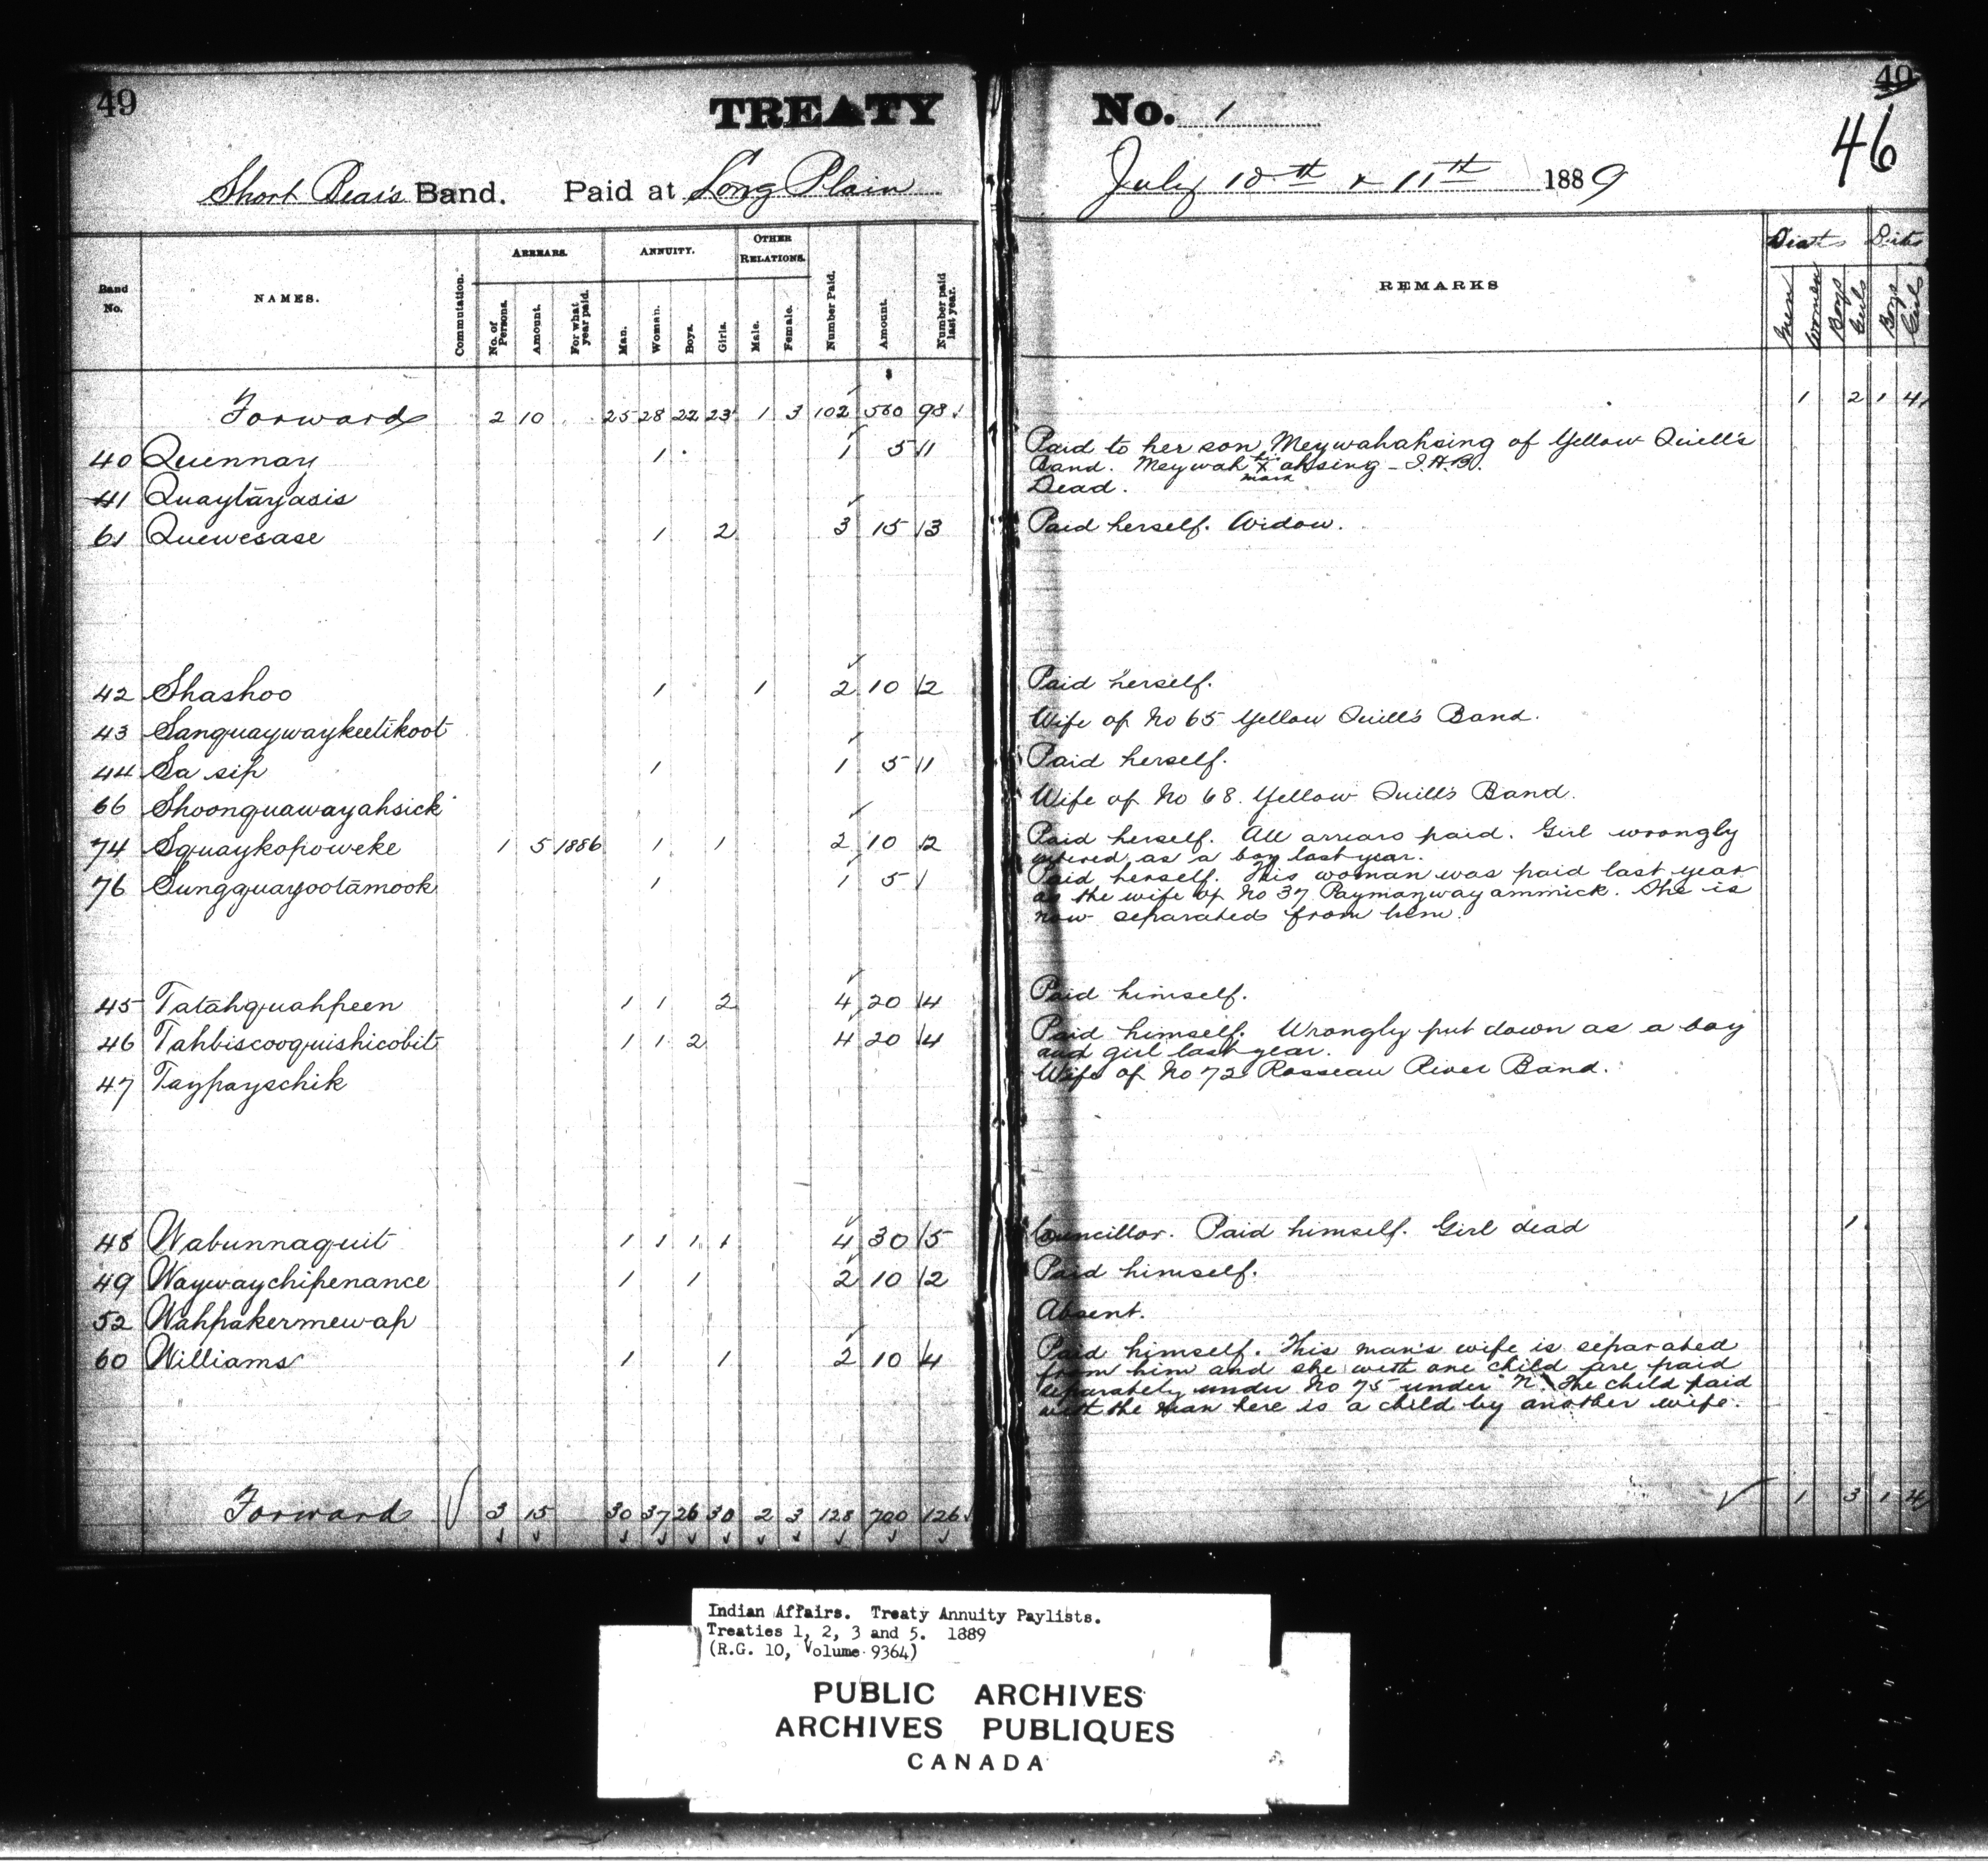 49
TREATY No. 1
49
46
Short Bear's Band. Paid at Long Plain July 10th & 11th 1889
Band No. NAMES. Commutation. ARREARS. No. of Persons. Amount. For what year paid. ANNUITY. Man. Woman. Boys. Girls. OTHER RELATIONS. Male. Female. Number Paid. Amount. Number paid last year. REMARKS Men Women Boys Girls Boys Girls
$
Forward 2 10 25 28 22 23 1 3 102 560 98 1 2 1 4
40 Quennay 1 1 5 1 Paid to her son, Meywahahsing of Yellow Quill's
Band. Meywah his X mark ahsing - I.H.B.
41 Quaytāyasis Dead.
61 Quewesase 1 2 3 15 3 Paid herself. Widow.
42 Shashoo 1 1 2 10 2 Paid herself.
43 Sanquaywaykeetikoot Wife of No 65 Yellow Quill's Band.
44 Sa sip 1 1 5 1 Paid herself.
66 Shoonquawayahsick Wife of No 68. Yellow Quill's Band.
74 Squaykopoweke 1 5 1886 1 1 2 10 2 Paid herself. All arrears paid. Girl wrongly
entered as a boy last year.
76 Sungquayootāmook 1 1 5 Paid herself. This woman was paid last year
as the wife of No 37 Paymanwayammick. She is
now separated from him.
45 Tatahquahpeen 1 1 2 4 20 4 Paid himself.
46 Tahbiscooquishicobit 1 1 2 4 20 4 Paid himself. Wrongly put down as a boy
and girl last year.
47 Taypayschik Wife of No 72 Rosseau River Band.
48 Wabunnaquit 1 1 1 1 4 30 5 Councillor. Paid himself. Girl dead 1
49 Waywaychipenance 1 1 2 10 2 Paid himself.
52 Wahpakermewap Absent.
60 Williams 1 1 2 10 4 Paid himself. This man's wife is separated
from him and she with one child are paid
separately under No 75 under "N". The child paid
with the man here is a child by another wife.
Forward 3 15 30 37 26 30 2 3 128 700 126 1 3 1 4
Indian Affairs. Treaty Annuity Paylists.
Treaties 1, 2, 3 and 5. 1889
(R.G. 10, Volume 9364)
PUBLIC ARCHIVES
ARCHIVES PUBLIQUES
CANADA